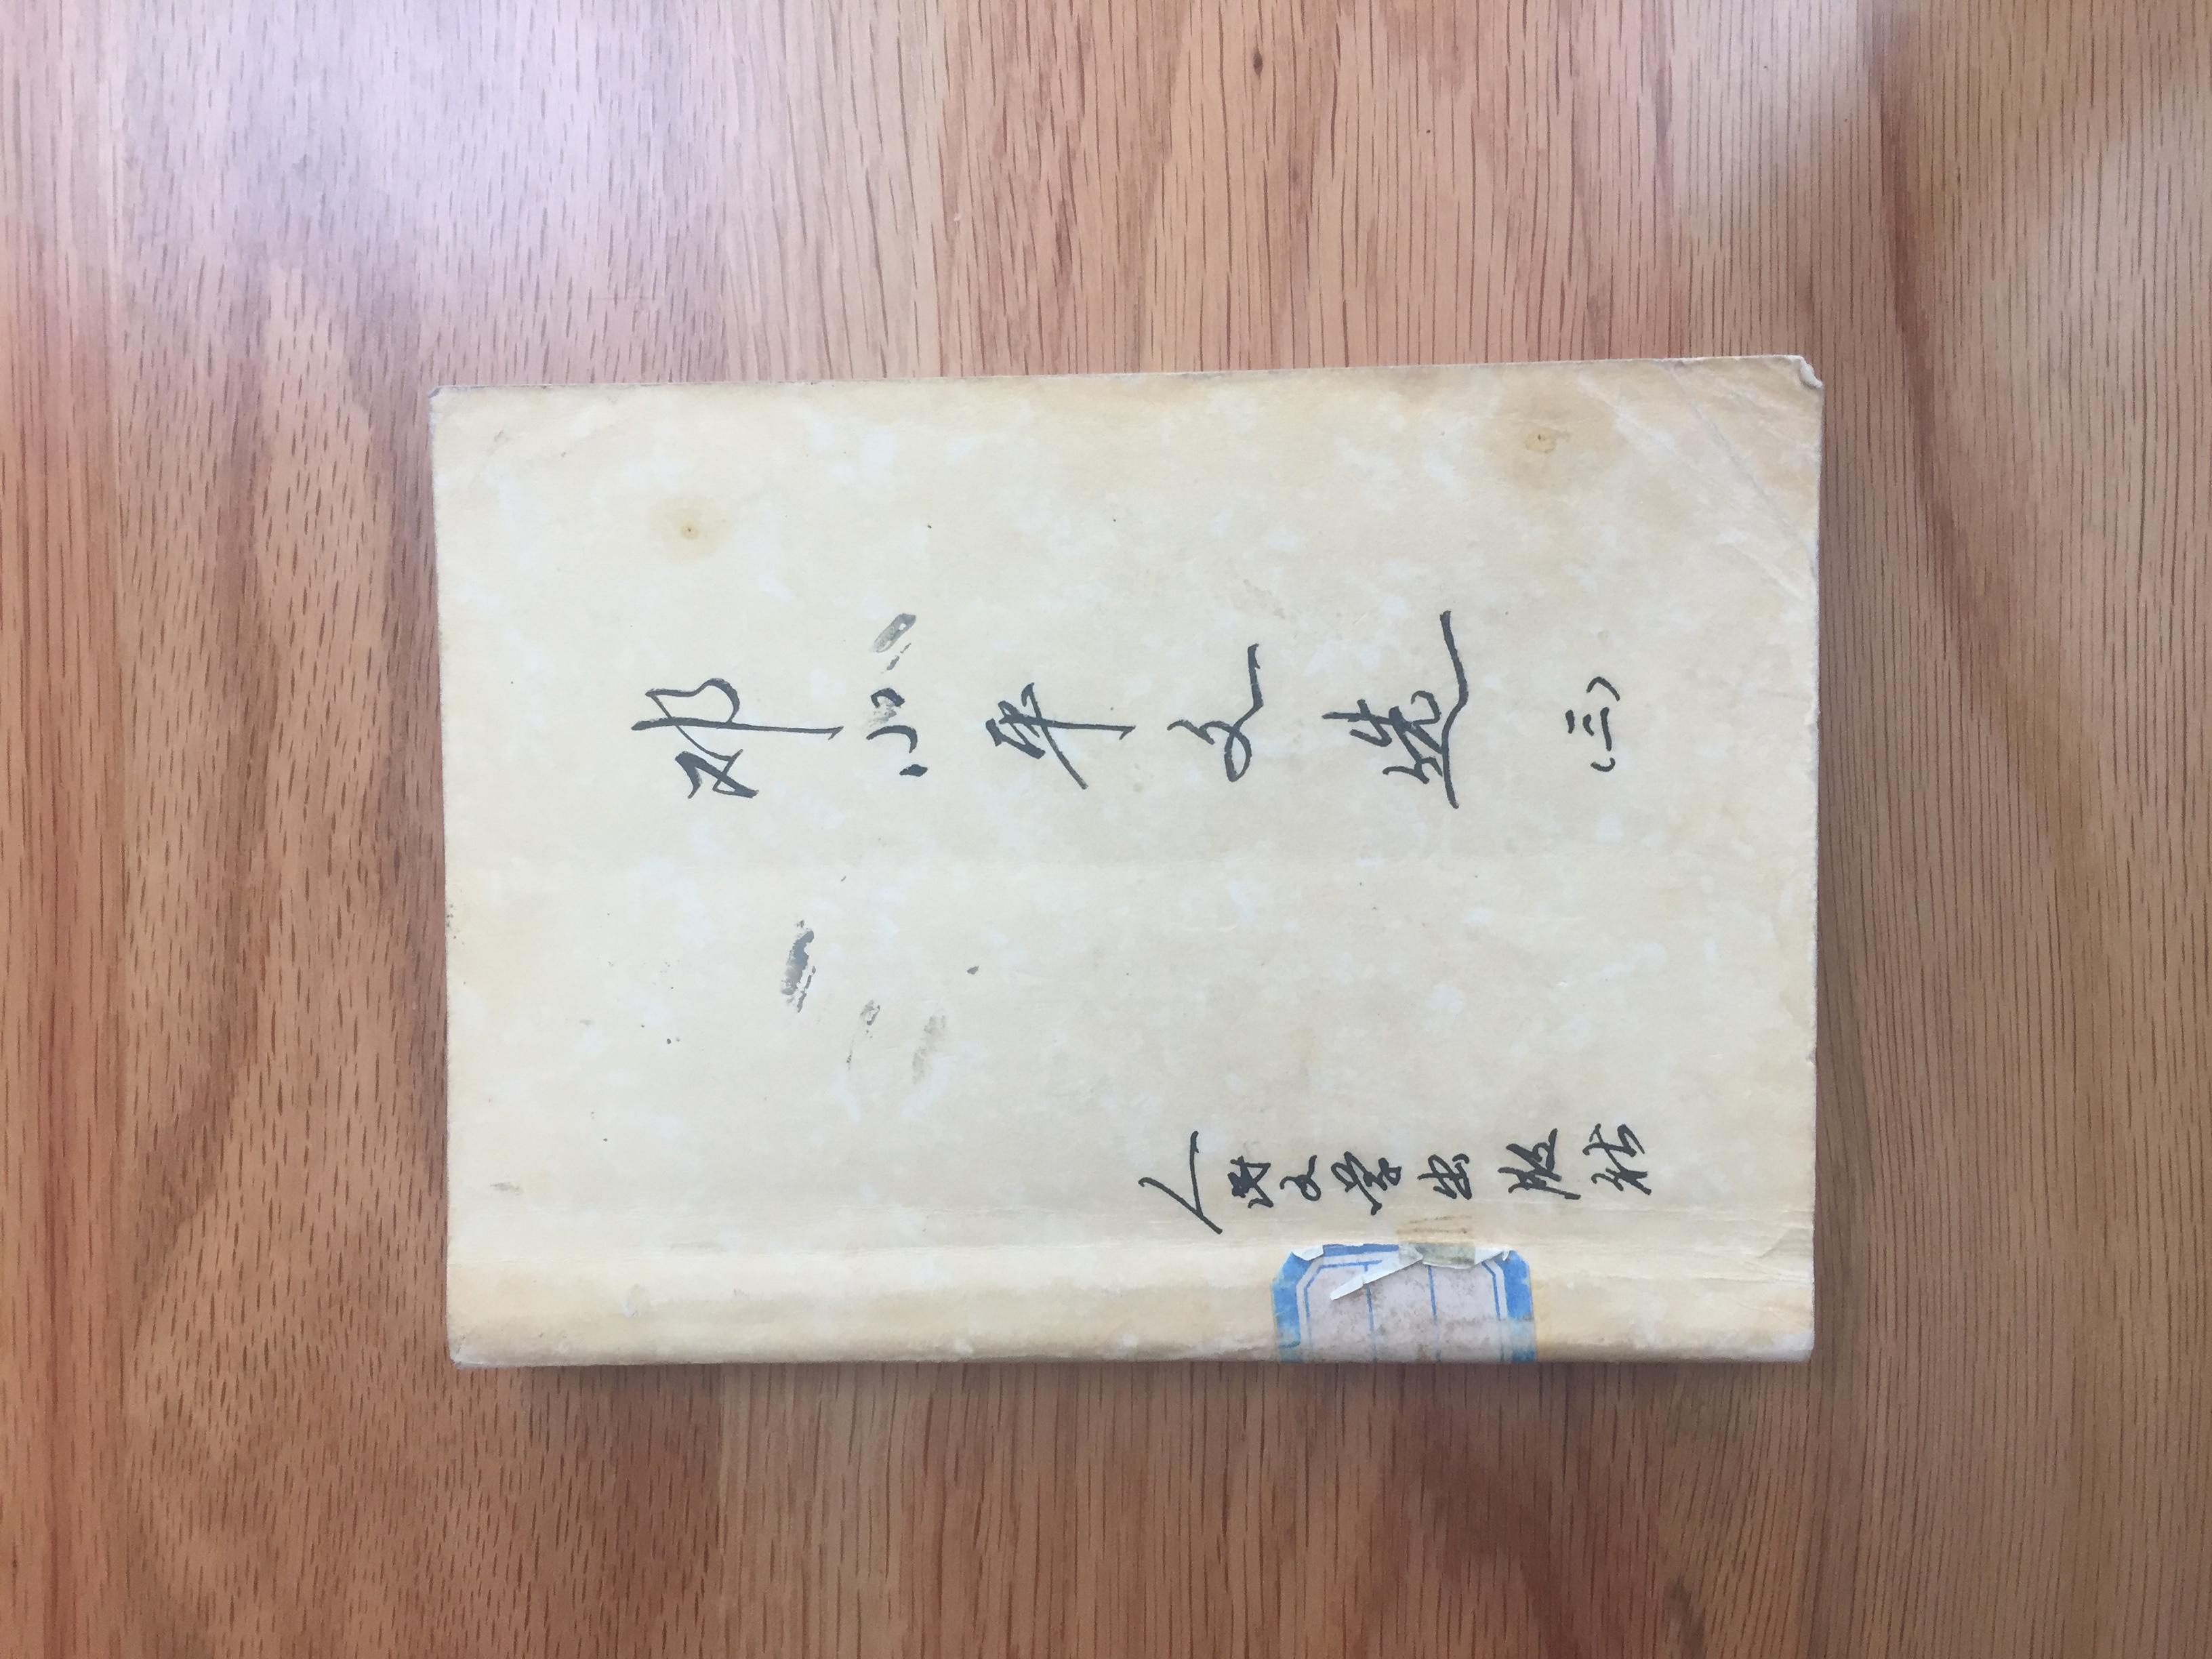 邓小平文选（三）
人民文学出版社